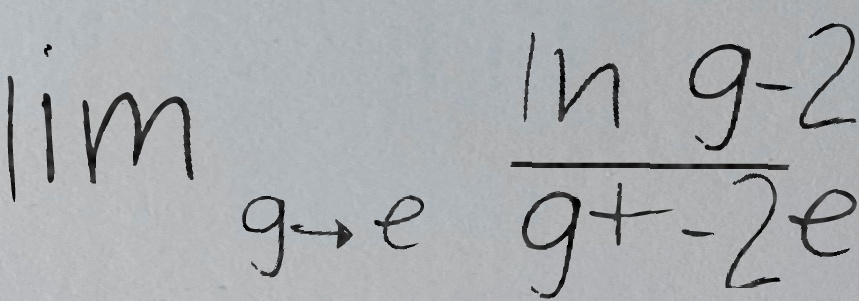 \lim_{g \to e} \frac{\ln g - 2}{g + -2e}